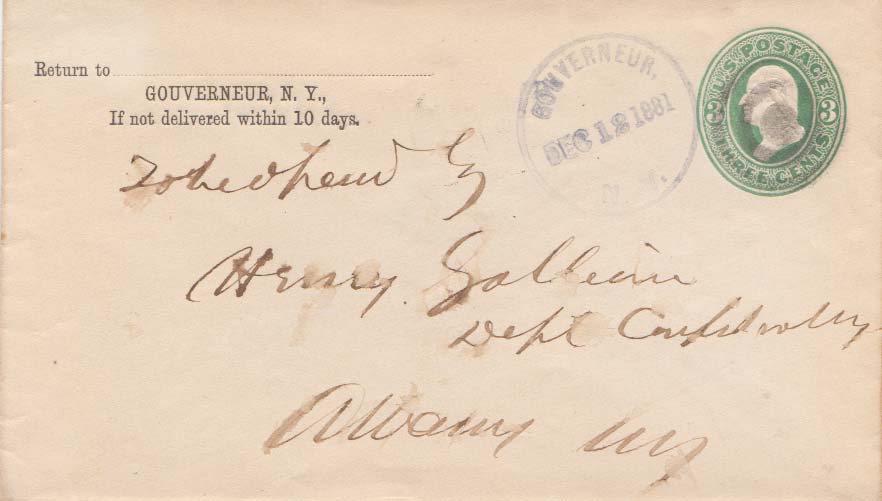 Return to
GOUVERNEUR, N. Y.,
If not delivered within 10 days.
GOUVERNEUR,
DEC 12 1881
N. Y.
U.S. POSTAGE
3 3
THREE CENTS
Henry
Dept
Albany NY